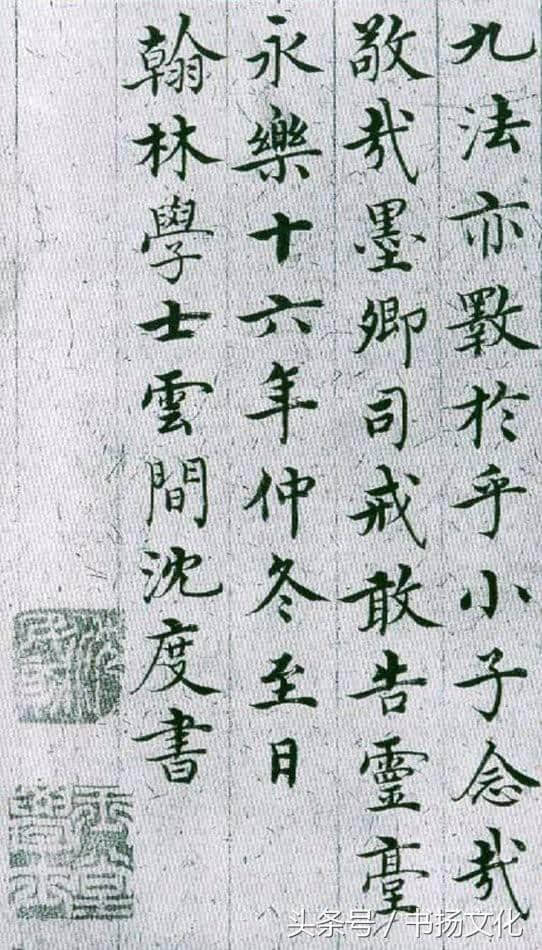 九法亦斁於乎小子念哉
敬哉墨卿司戒敢告靈臺
永樂十六年仲冬至日
翰林學士雲間沈度書
头条号/书扬文化